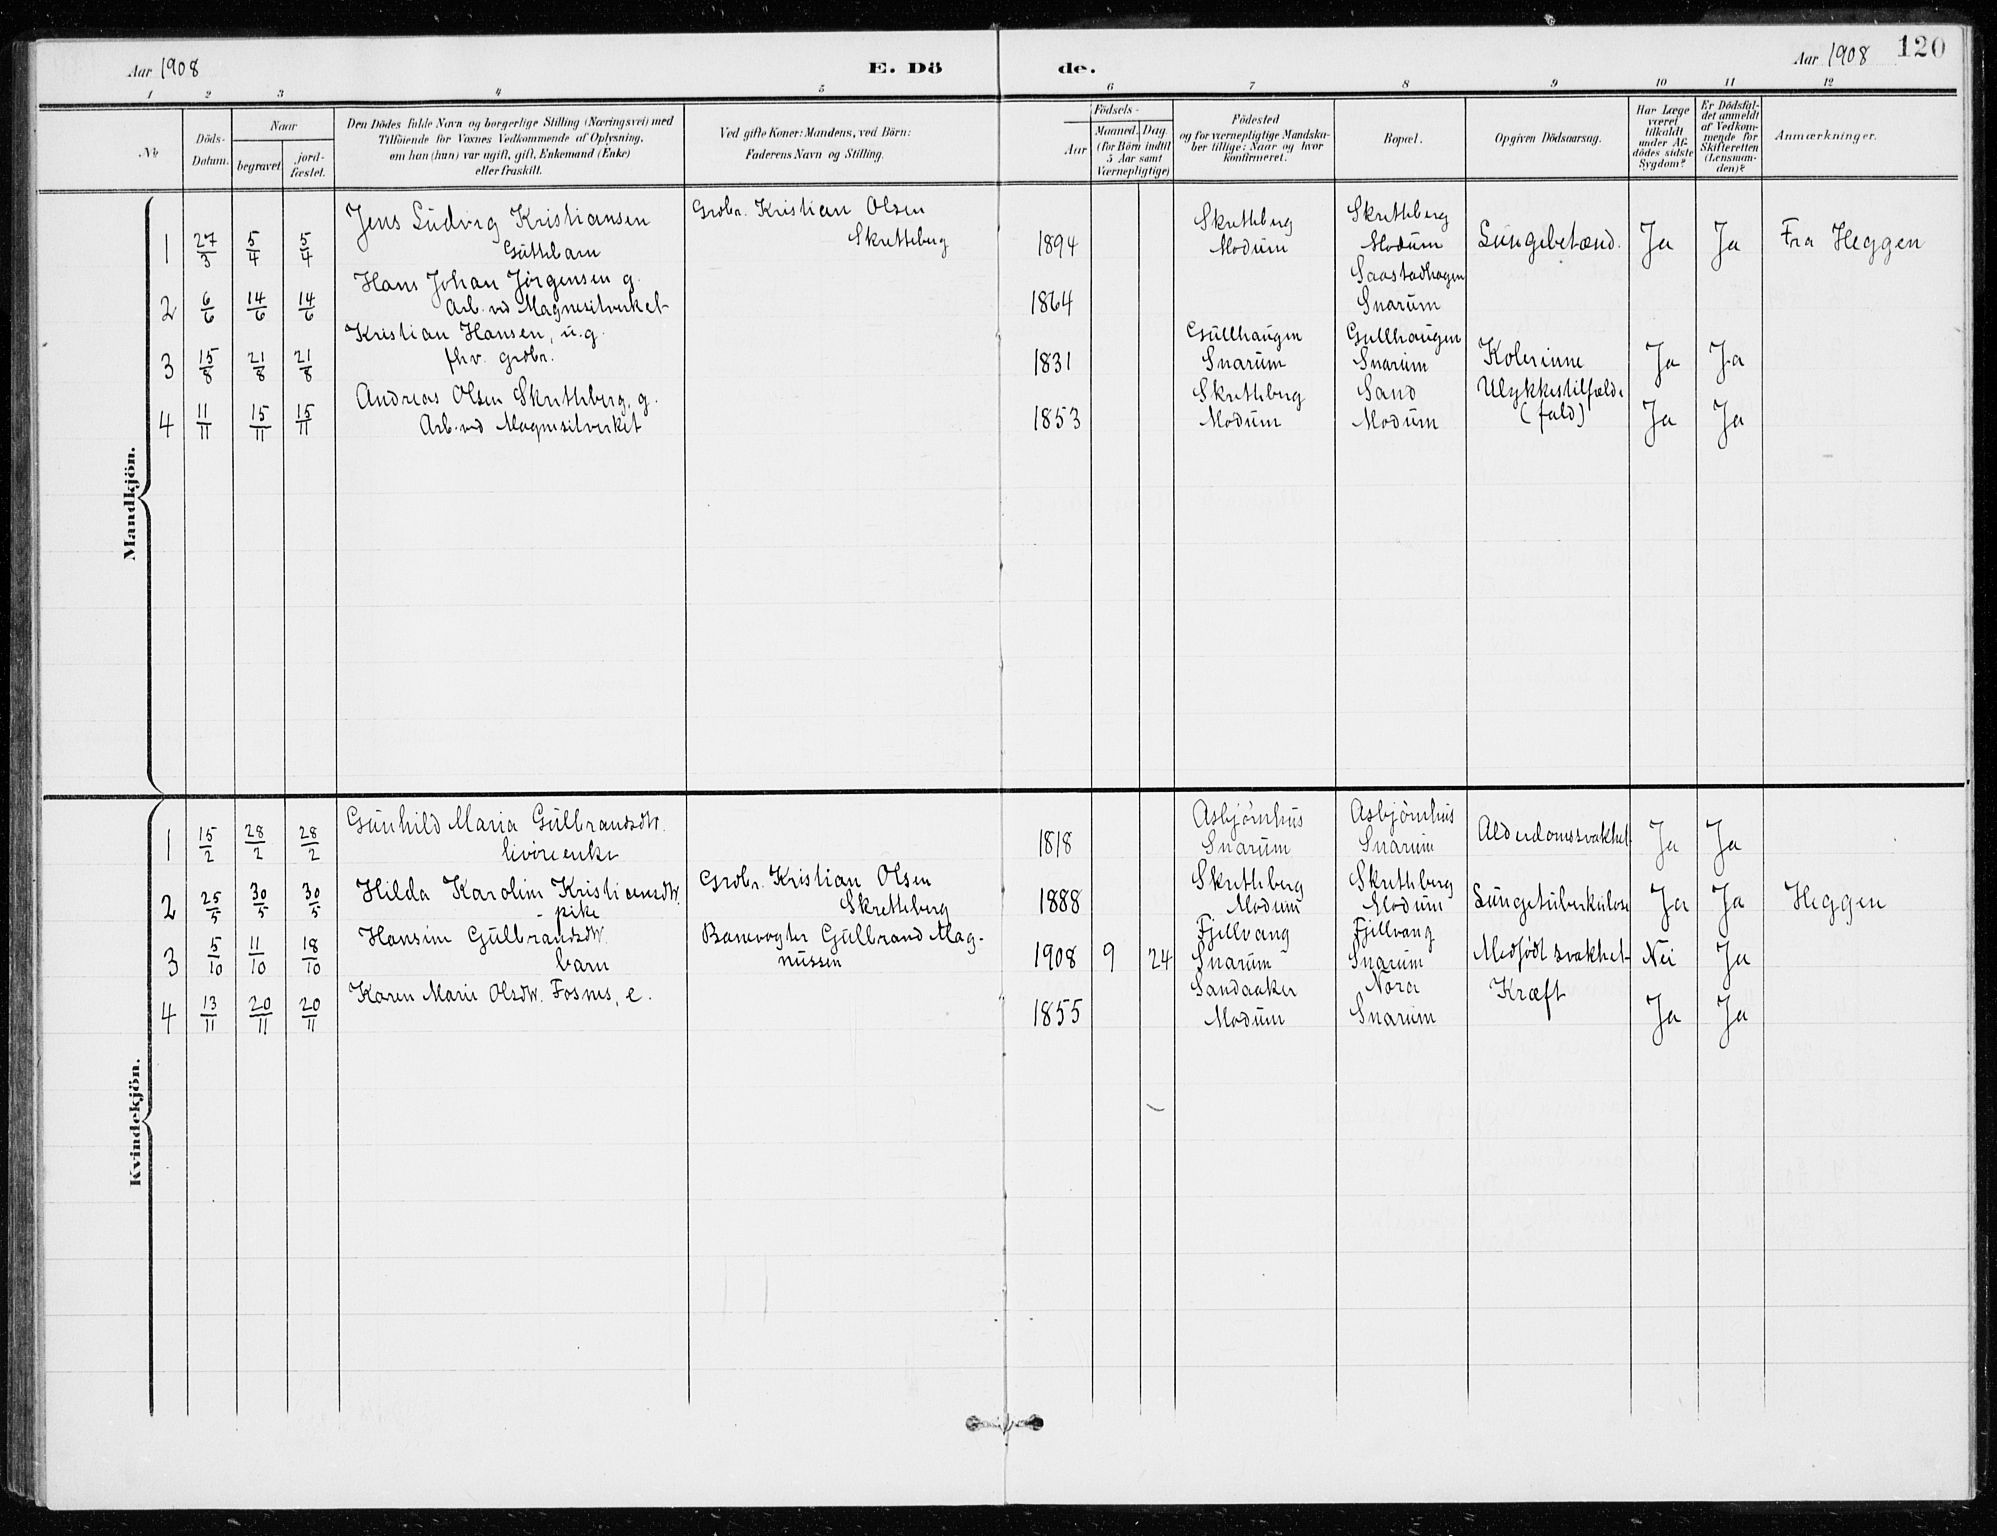 Aar 1908 E. Dö de. Aar 1908 120
1 2 3 4 5 6 7 8 9 10 11 12
No
Döds-Datum.
Naar
begravet.
jord-fæstet.
Den Dödes fulde Navn og borgerlige Stilling (Næringsvei) med
Tilföiende for Voxnes Vedkommende af Oplysning,
om han (hun) var ugift, gift, Enkemand (Enke)
eller fraskilt.
Ved gifte Koner: Mandens, ved Börn:
Faderens Navn og Stilling.
Födsels-
Aar
Maaned. Dag.
(for Börn indtil
5 Aar samt
Værnepligtige)
Födested
og for værnepligtige Mandska-
ber tillige: Naar og hvor
konfirmeret.
Bopæl.
Opgiven Dödsaarsag.
Har Læge
været
tilkaldt
under Af-
dödes sidste
Sygdom?
Er Dödsfal-
det anmeldt
af Vedkom-
mende for
Skifteretten
(Lensman-
den)?
Anmærkninger.
Mandkjön.
Jens Ludvig Kristiansen Grdbr. Kristian Olsen Skretteberg Skretteberg
1 27/3 5/4 5/4 Guttebarn Skretteberg 1894 Modum Modum Lungebetænd. Ja Ja Fra Heggen
Hans Johan Jørgensen g. Saastadhagen
2 6/6 14/6 14/6 Arb. ved Magnesitverket 1864 Snarum
Kristian Hansen, u.g. Gullhaugen Gullhaugen
3 15/8 21/8 21/8 fhv. grdbr. 1831 Snarum Snarum Kolerinne Ja Ja
Andreas Olsen Skretteberg, g. Skretteberg Sand Ulykkestilfælde
4 11/11 15/11 15/11 Arb. ved Magnesitverket 1853 Modum Modum (fald) Ja Ja
Kvindekjön.
Gunhild Maria Gulbrandsdtr. Asbjørnhus Asbjørnhus
1 15/2 28/2 28/2 livøreenke 1818 Snarum Snarum Alderdomssvakhet Ja Ja
Hilda Karolin Kristiansdtr. Grdbr. Kristian Olsen Skretteberg Skretteberg
2 25/5 30/5 30/5 - pike Skretteberg 1888 Modum Modum Lungetuberkulose Ja Ja Heggen
Hansine Gulbrandsdtr. Banevogter Gulbrand Mag- Fjellvang Fjellvang
3 5/10 11/10 18/10 barn nussen 1908 9 24 Snarum Snarum Medfødt svakhet Nei Ja
Karen Marie Olsdtr. Fosnes, e. Sandaaker Nora Kræft
4 13/11 20/11 20/11 1855 Modum Snarum Ja Ja